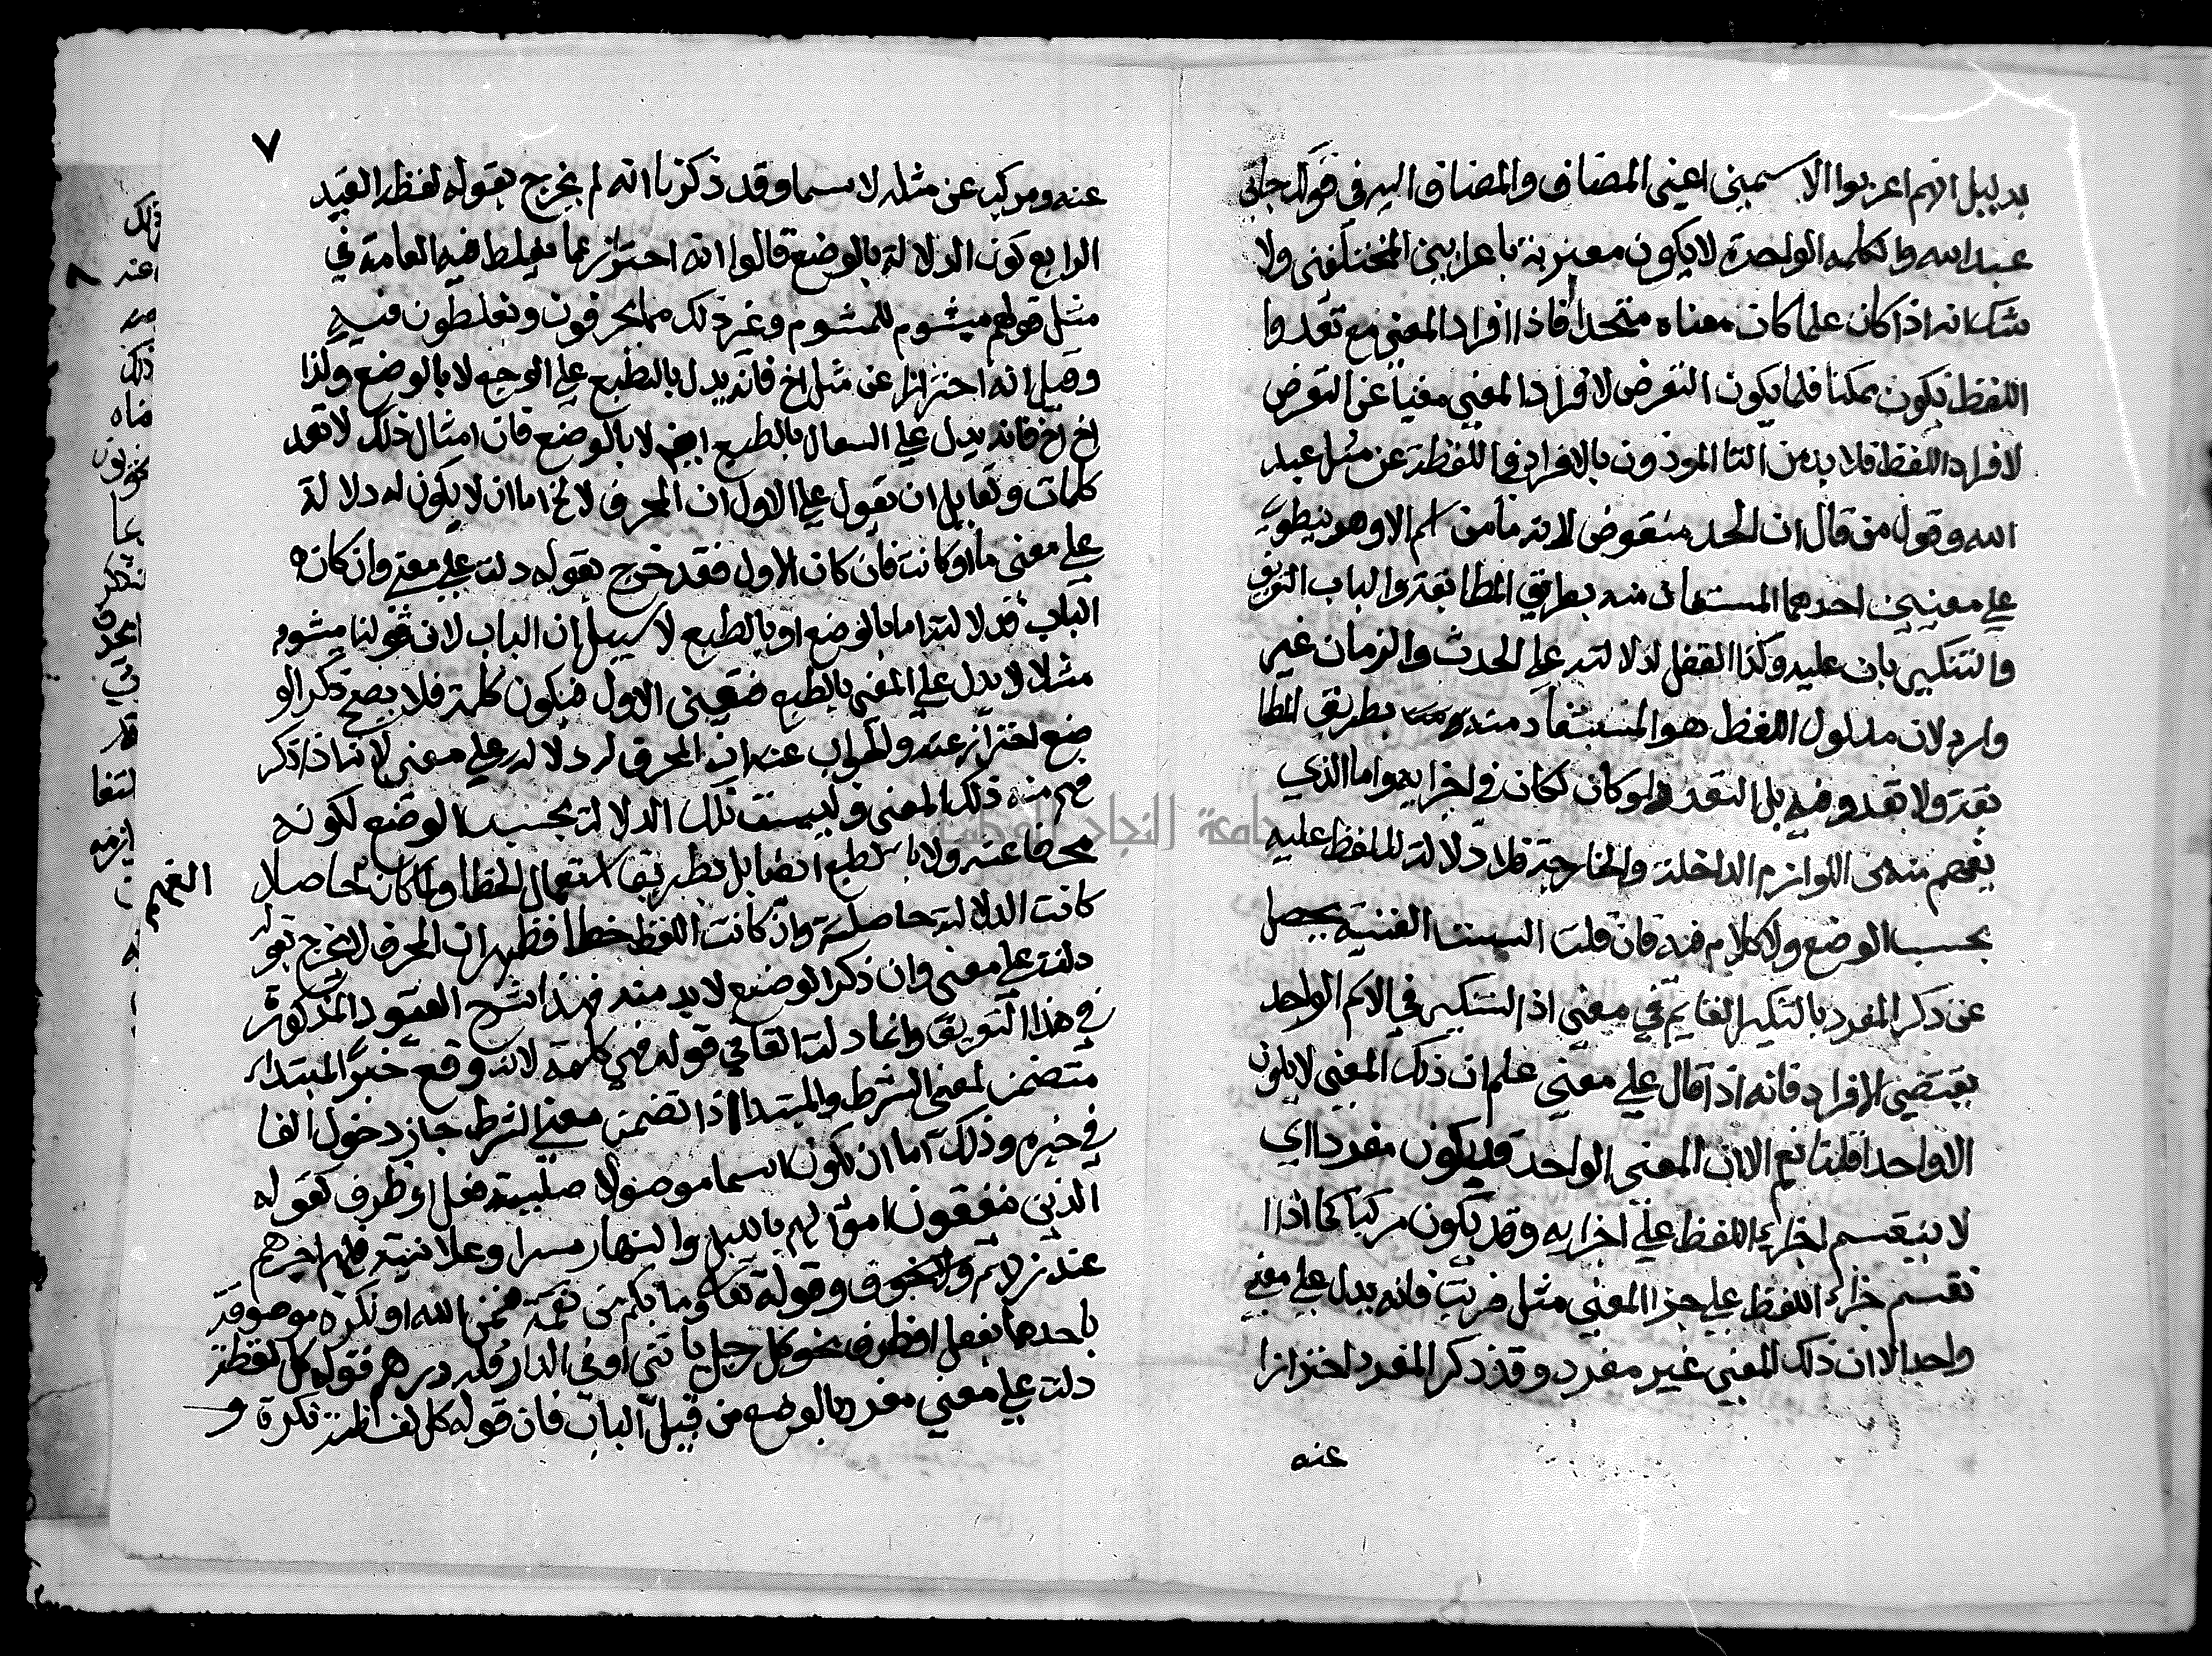 بدليل انهم اعربوا الاسمين اعني المضاف والمضاف اليه في قولك جاني
عبد الله والكلمه الواحدة لا يكون معربة باعرابين المختلفين ولا
شك انه اذا كان علما كان معناه متحدا فاذا افراد المعنى مع تعدد
اللفظ يكون ممكنا فلما يكون التعرض لافراد المعنى مغنيا عن التعرض
لافراد اللفظ فلا بد من التا الموذون بالافراد في اللفظة عن مثل عبد
الله وقول من قال ان الحد منقوض لانه ما من اسم الا وهو
على معنيين احدهما المستفاد منه بطريق المطابقة والباب التعريف
والتنكير بان عليه وكذا الفعل لدلالته على الحدث والزمان غير
وارد لان مدلول اللفظ هو المستفاد منه بطريق المطا
بقة ولا تعدد فيه بل التعدد لو كان لكان في اجزايه واما الذي
يفهم منه من اللوازم الداخلة والخارجة فلا دلالة للفظ عليه
بحسب الوضع ولا كلام فيه فان قلت اليست الغنية يحصل
عن ذكر المفرد بالتنكير القايم في معنى اذ التنكير في الاسم الواحد
يقتضي الافراد فانه اذا قال على معنى علم ان ذلك المعنى لا يكون
الا واحدا قلنا نعم الا ان المعنى الواحد قد يكون مفردا اي
لا ينقسم اجزاء اللفظ على اجزايه وقد يكون مركبا كما اذا ا
نقسم جزاء اللفظ على جزا المعنى مثل ضربت فانه يدل على معنى
واحد الا ان ذلك المعنى غير مفرد وقد ذكر المفرد احترازا
عنه
٧
عنه ومركب عن مثله لا سيما وقد ذكرنا انه لم يخرج بقوله لفظه القيد
الرابع كون الدلالة بالوضع قالوا انه احتراز عما يغلط فيه العامة في
مثل قولهم ميشوم للمشوم وغير ذلك مما يحرفون ويغلطون فيه
وقيل انه احترازا عن مثل اخ فانه يدل بالطبع على الوجع لا بالوضع ولذا
اخ اخ فانه يدل على السعال بالطبع ايضا لا بالوضع فان امثال ذلك لا تعد
كلمات ولقايل ان يقول على الاول ان المحرف لا يخ اما ان لا يكون له دلالة
على معنى ما او كانت فان كان الاول فقد خرج بقوله دلت على معنى وان كان
الباب فدلالته اما بالوضع او بالطبع لا سبيل ان الباب لان قولنا ميشوم
مثلا لا يدل على المعنى بالطبع فتعين الاول فيكون كلمة فلا يصح ذكر الو
ضع احتراز عنه والجواب عنه ان المحرف له دلاله على معنى لاننا اذا ذكر
فهم منه ذلك المعنى وليست تلك الدلالة بحسب الوضع لكونه
محرفا عنه ولا بالطبع ايضا بل بطريق استعمال الخطا ولما كان حاصلا
الفهم
كانت الدلالة حاصلة وان كانت اللفظ خطأ فظهر ان المحرف لا يخرج بقوله
دلت على معنى وان ذكر الوضع لا بد منه فهذا شرح القيود المذكورة
في هذا التعريف وانما دخلت الفا في قوله فهي كلمة لانه وقع خبر المبتداء
متضمن لمعنى الشرط والمبتدا اذا تضمن معنى الشرط جاز دخول الفا
في خبره وذلك اما ان يكون اسما موصولا صلته فعل او ظرف كقوله
الذين ينفقون اموالهم بالليل والنهار سرا وعلانية فلهم اجرهم
عند ربهم ولا خوف وقوله تعا وما بكم من نعمة فمن الله او نكرة موصوفة
باحدهما بفعل او ظرف نحو كل رجل ياتني او في الدار فله درهم فقوله كل لفظة
دلت على معنى مفرد بالوضع من قبيل الباب فان قوله كل لفظة نكرة و